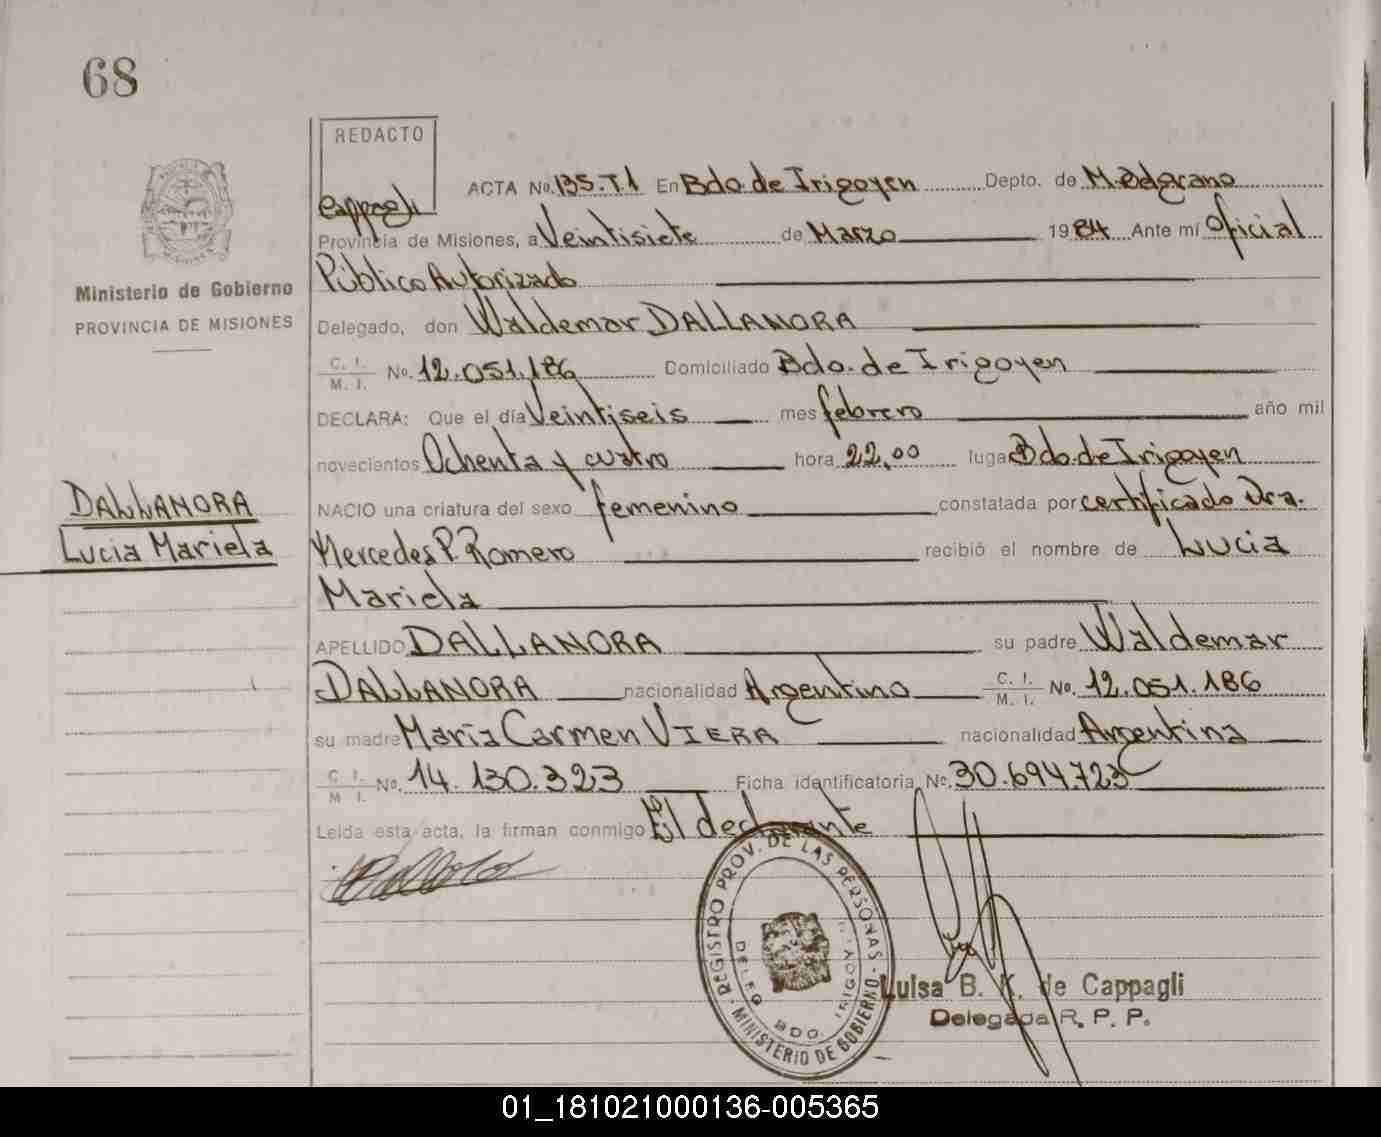 68
REDACTO
Cappagli
ACTA No. 135.T.1 En Bdo. de Irigoyen Depto. de M. Belgrano
Provincia de Misiones, a Veintisiete de Marzo 1984 Ante mí Oficial
Público Autorizado
Ministerio de Gobierno
PROVINCIA DE MISIONES
Delegado, don Waldemar DALLANORA
C. I. M. I. No. 12.051.186 Domiciliado Bdo. de Irigoyen
DECLARA: Que el día Veintiseis mes febrero año mil
novecientos Ochenta y cuatro hora 22,00 luga Bdo. de Irigoyen
DALLANORA
Lucia Mariela
NACIO una criatura del sexo femenino constatada por certificado Dra.
Mercedes P. Romero recibió el nombre de Lucia
Mariela
APELLIDO DALLANORA su padre Waldemar
DALLANORA nacionalidad Argentino C. I. M. I. No. 12.051.186
su madre María Carmen VIERA nacionalidad Argentina
C. I. M I. No. 14.130.323 Ficha identificatoria No. 30.694.723
Leída esta acta, la firman conmigo El declarante
REGISTRO PROV. DE LAS PERSONAS - MINISTERIO DE GOBIERNO -
DELEG BDO. IRIGOY
Luisa B. K. de Cappagli
Delegada R. P. P.
01_181021000136-005365